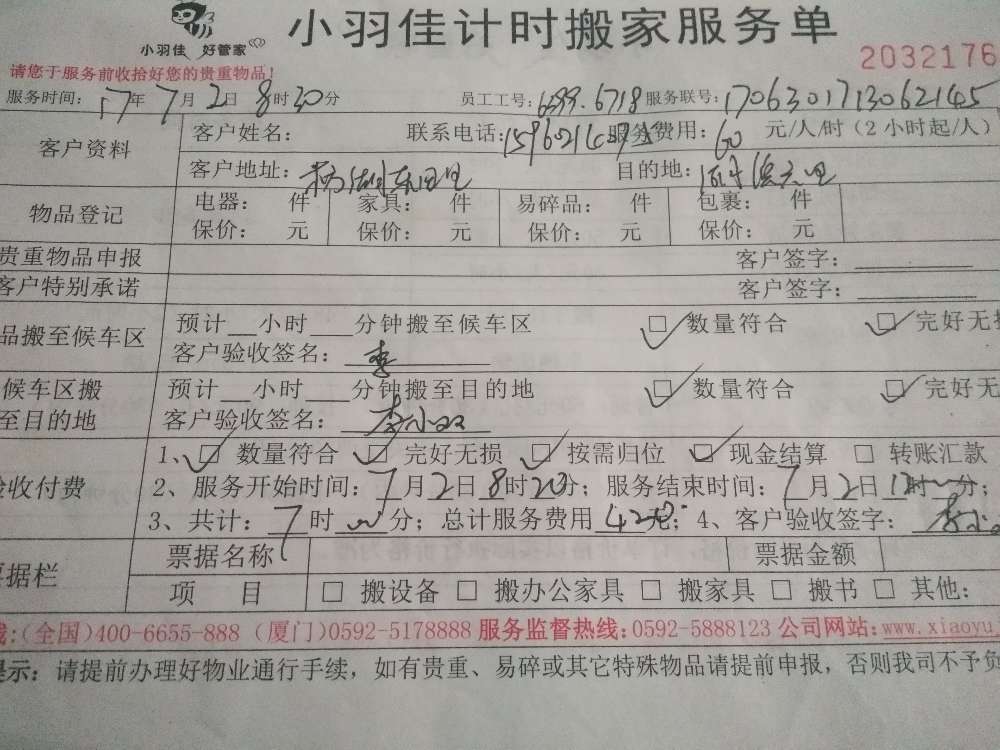 小羽佳 好管家
小羽佳计时搬家服务单
2032176
请您于服务前收拾好您的贵重物品!
服务时间: 17年7月2日8时20分 员工工号: 6299.6718 服务联号: 1706301713062145
客户资料 客户姓名: 联系电话: 服务费用: 60 元/人/时(2小时起/人)
客户地址: 目的地:
物品登记 电器: 件 家具: 件 易碎品: 件 包裹: 件
保价: 元 保价: 元 保价: 元 保价: 元
贵重物品申报 客户签字:
客户特别承诺 客户签字:
品搬至候车区 预计__小时___分钟搬至候车区 □数量符合 □完好无损
客户验收签名: 李
候车区搬 预计__小时___分钟搬至目的地 □数量符合 □完好无
至目的地 客户验收签名: 李小双
验收付费 1、□数量符合 □完好无损 □按需归位 □现金结算 □转账汇款
2、服务开始时间: 7月2日8时20分; 服务结束时间: 7月2日 时 分;
3、共计: 7时 分; 总计服务费用 420元; 4、客户验收签字: 李小
票据栏 票据名称 票据金额
项 目 □搬设备 □搬办公家具 □搬家具 □搬书 □其他:
线:(全国)400-6655-888 (厦门)0592-5178888 服务监督热线:0592-5888123 公司网站:www.xiaoyu
提示: 请提前办理好物业通行手续，如有贵重、易碎或其它特殊物品请提前申报，否则我司不予负